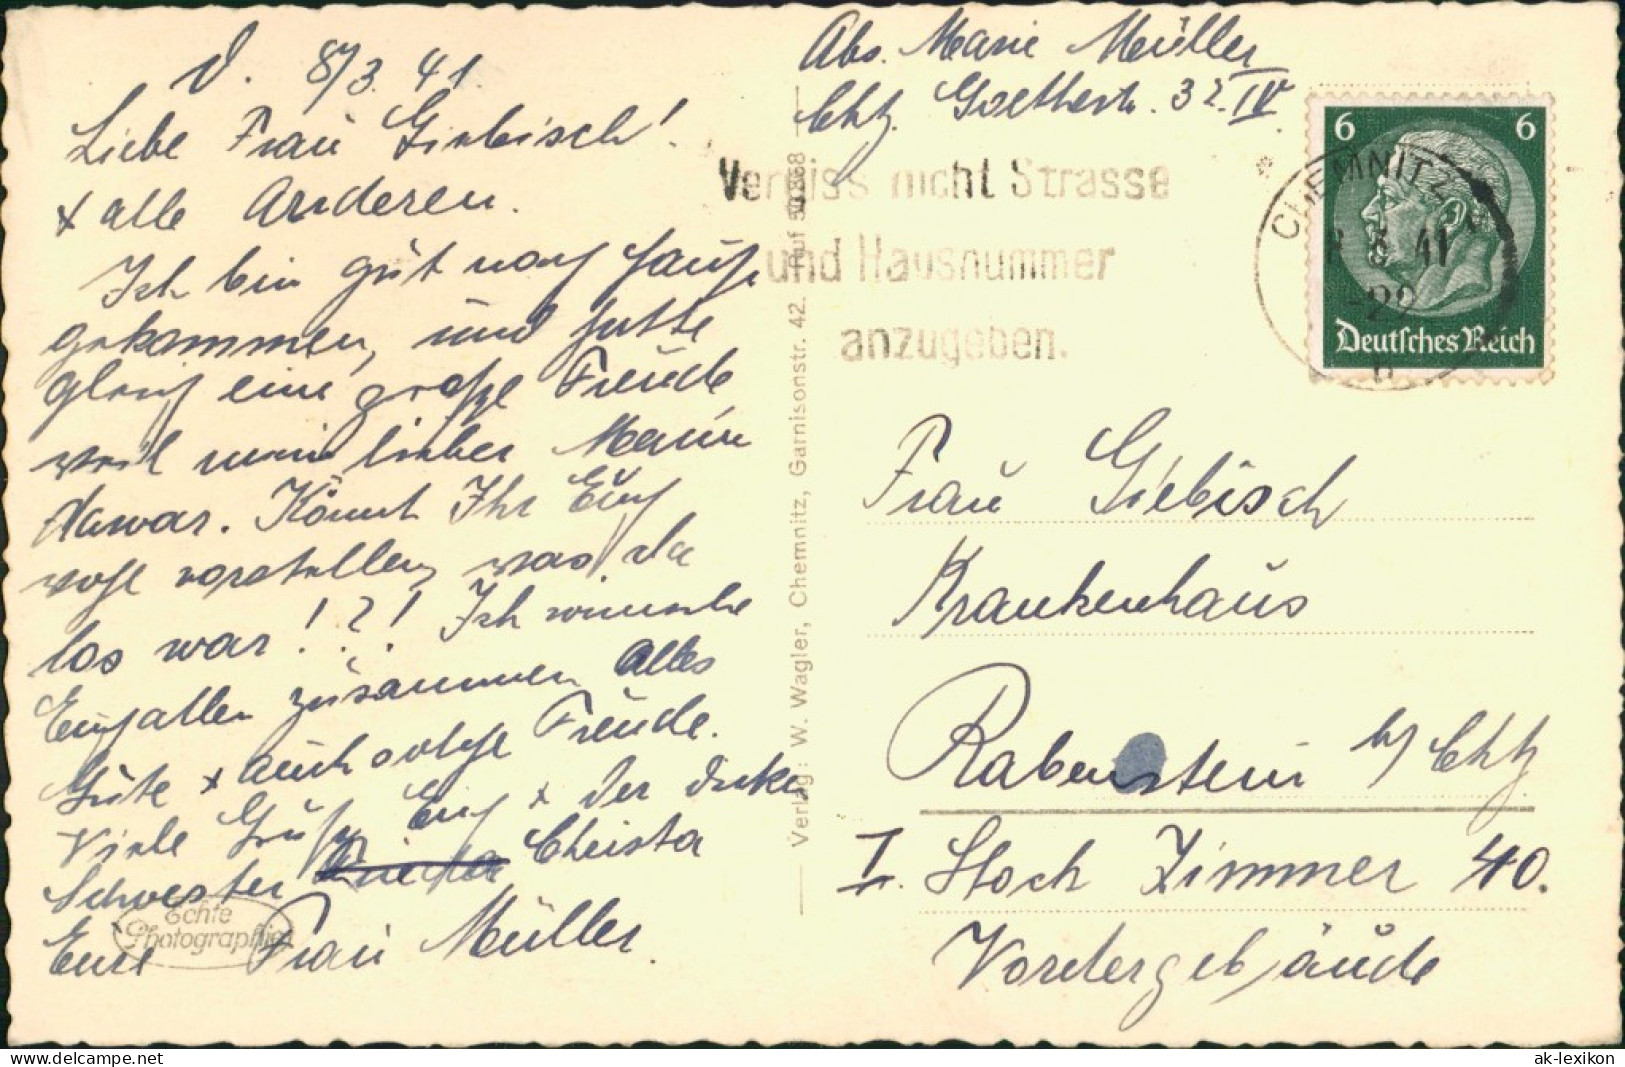 d. 8/3. 41.
Liebe Frau Giebisch!
+ alle Anderen.
Ich bin gut nach Hause
gekommen, und hatte
gleich eine große Freude
weil mein lieber Mann
da war. Könnt Ihr Euch
wohl vorstellen, was da
los war!?! Ich wünsche
Euch allen zusammen Alles
Gute + auch solche Freude.
Viele Grüße Euch + der dicken
Schwester Christa
Eure Frau Müller.
Echte
Photographie
Verlag: W. Wagler, Chemnitz, Garnisonstr. 42. Ruf 50368
Abs. Marie Müller
Chtz. Goethestr. 32. IV.
Vergiss nicht Strasse
und Hausnummer
anzugeben.
CHEMNITZ
8. 3. 41
-22
6 6
Deutsches Reich
Frau Giebisch
Krankenhaus
Rabenstein b/ Chtz
I. Stock Zimmer 40.
Vordergebäude
ak-ansichtskarten.de
ak-lexikon